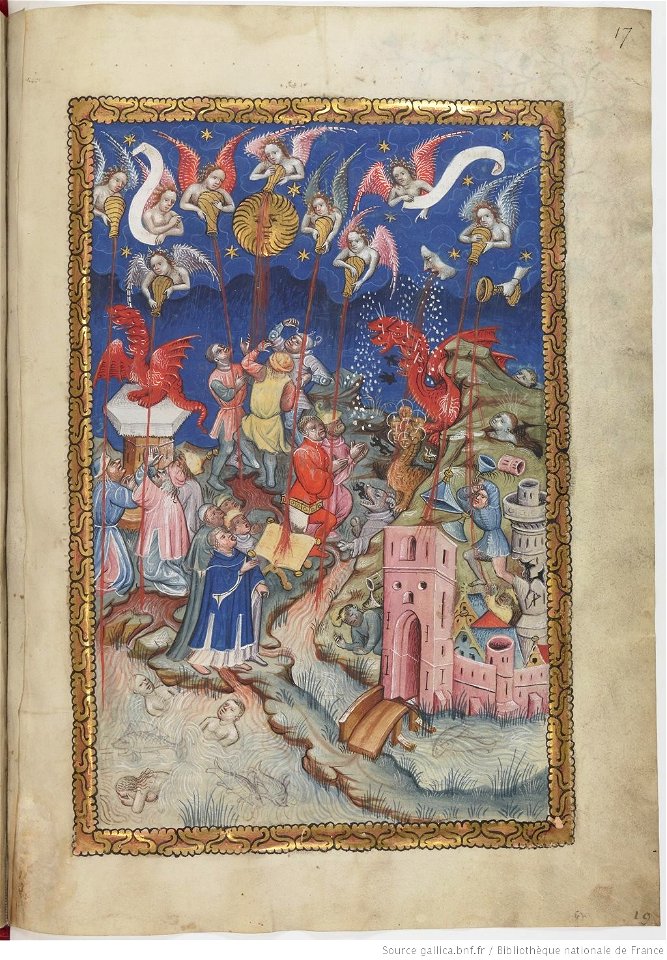 17
19
Source gallica.bnf.fr / Bibliothèque nationale de France